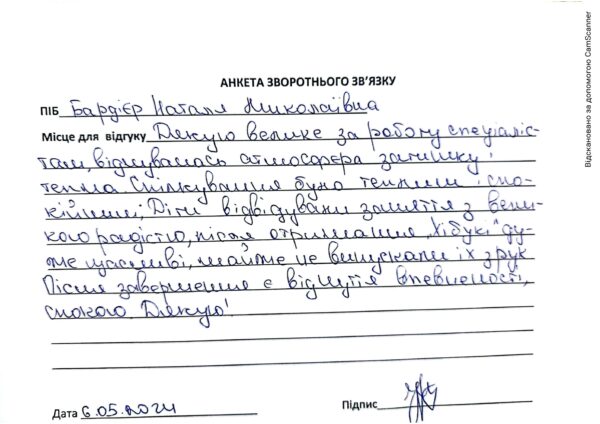 АНКЕТА ЗВОРОТНЬОГО ЗВ'ЯЗКУ
ПІБ Бардієр Наталя Миколаївна
Місце для відгуку Дякую велике за роботу спеціаліс-
там, відчувалась атмосфера затишку і
тепла Спілкування було теплим і спо-
кійним; Діти відвідували заняття з вели-
кого радістю, після отримання "Хібукі" ду-
же щасливі, майже не випускали їх з рук
Після завершення є відчуття впевненості,
спокою Дякую!
Дата 6.05.2024
Підпис
Відскановано за допомогою CamScanner